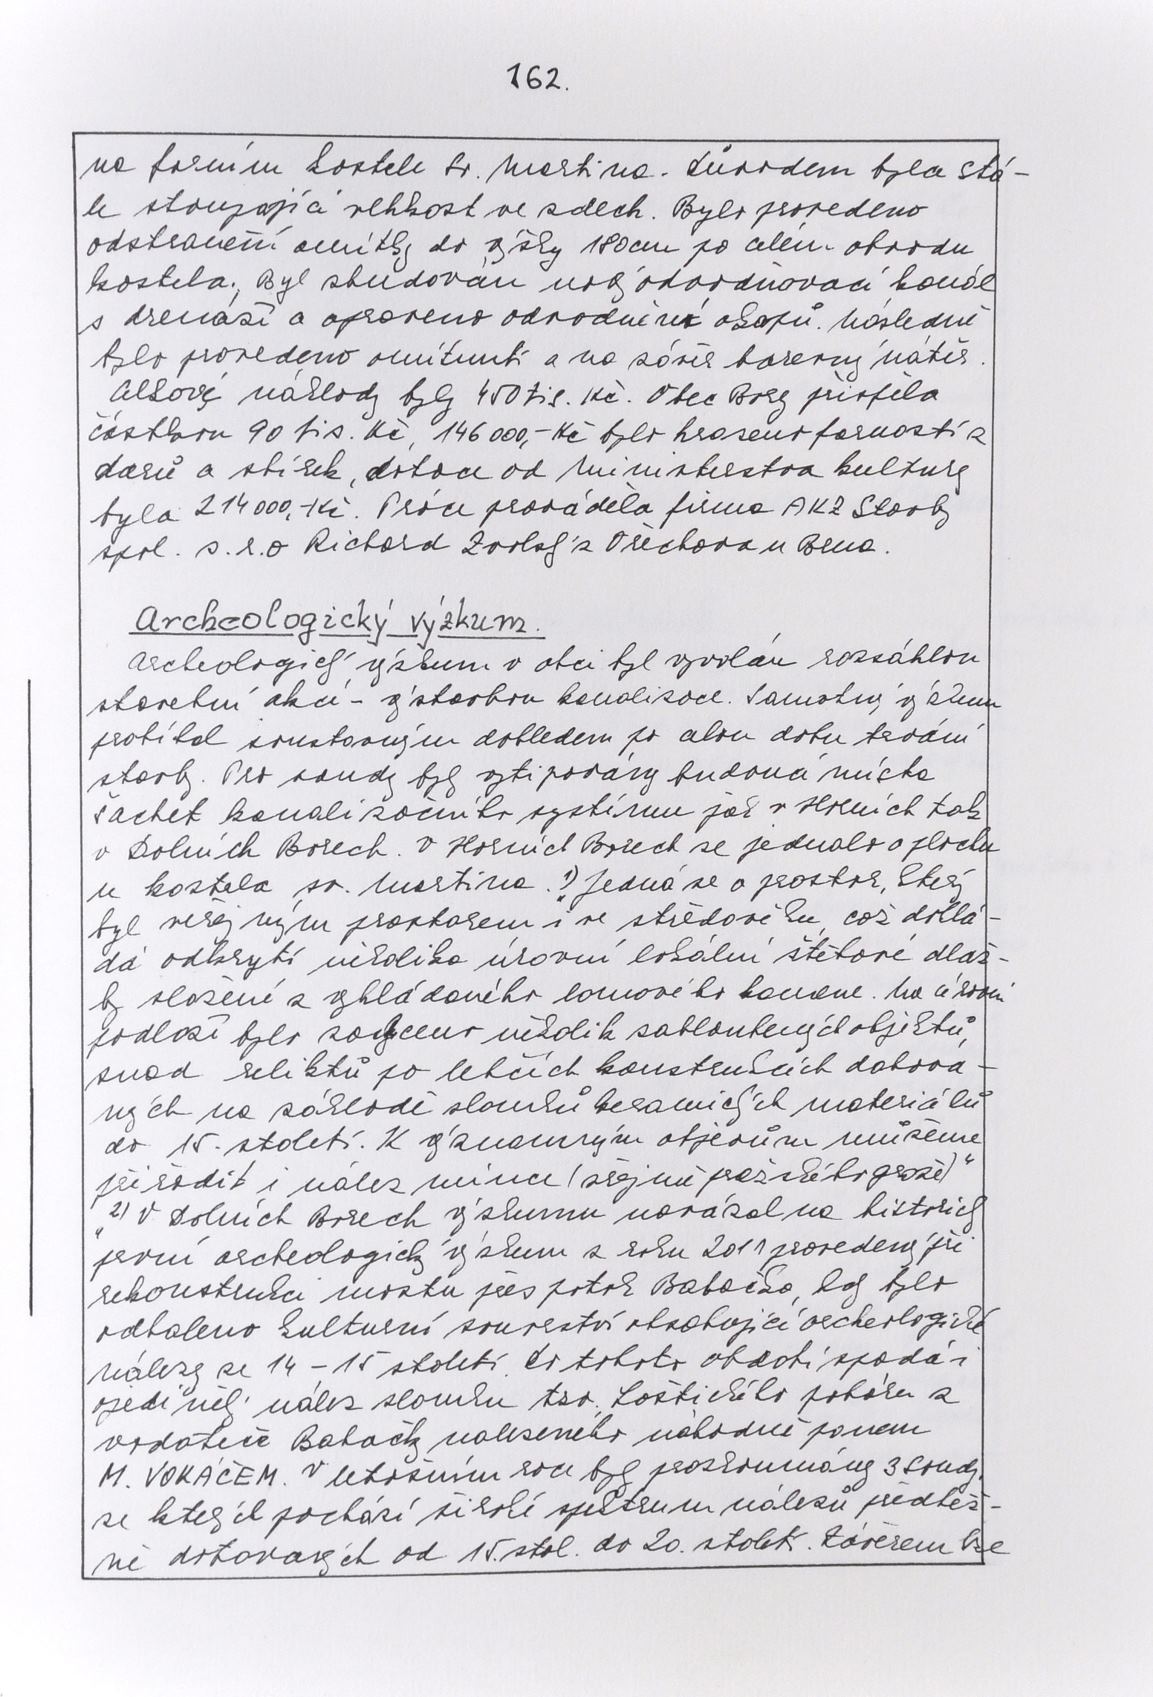 162.
na farním kostele sv. Martina. Důvodem byla stá-
le stoupající vlhkost ve zdech. Bylo provedeno
odstranění omítky do výšky 180cm po celém obvodu
kostela., Byl zbudován nový odvodňovací kanál
s drenáží a opraveno odvodnění okapů. Následně
bylo provedeno omítnutí a na závěr barevný nátěr.
Celkové náklady byly 450 tis. Kč. Obec Bory přispěla
částkou 90 tis. Kč, 146 000,- Kč bylo hrazeno farností z
darů a sbírek, dotace od Ministerstva kultury
byla 214 000,- Kč. Práce prováděla firma AKZ Stavby
spol. s.r.o Richard Zvolský z Ořechova u Brna.
Archeologický výzkum.
Archeologický výzkum v obci byl vyvolán rozsáhlou
stavební akcí - výstavbou kanalizace. Samotný výzkum
probíhal soustavným dohledem po celou dobu trvání
stavby. Pro sondy byly vytipovány budoucí místa
šachet kanalizačního systému jak v Horních tak
v Dolních Borech. V Horních Borech se jednalo o plochu
u kostela sv. Martina. 1) „Jedná se o prostor, který
byl veřejným prostorem i ve středověku, což doklá-
dá odkrytí několika úrovní lokální štětové dlaž-
by složené z vyhládaného lomového kamene. Na úrovni
podloží bylo zachyceno několik zahloubených objektů,
snad reliktů po lehčích konstrukcích datova-
ných na základě zlomků keramických materiálů
do 15. století. K významným objevům můžeme
přiřadit i nález mince (zřejmě pražského groše)“
„2) V Dolních Borech výzkumu navázal na historicky
první archeologický výzkum z roku 2011 provedený při
rekonstrukci mostu přes potok Babačka, kdy bylo
odhaleno kulturní souvrství obsahující archeologické
nálezy ze 14 - 15 století. Do tohoto období spadá i
ojedinělý nález zlomku tzv. Loštického poháru z
vodoteče Babačky nalezeného náhodně panem
M. VOKÁČEM. V letošním roce byly prozkoumány 3 sondy,
ze kterých pochází široké spektrum nálezů předběž-
ně datovaných od 15. stol. do 20. století. Závěrem lze